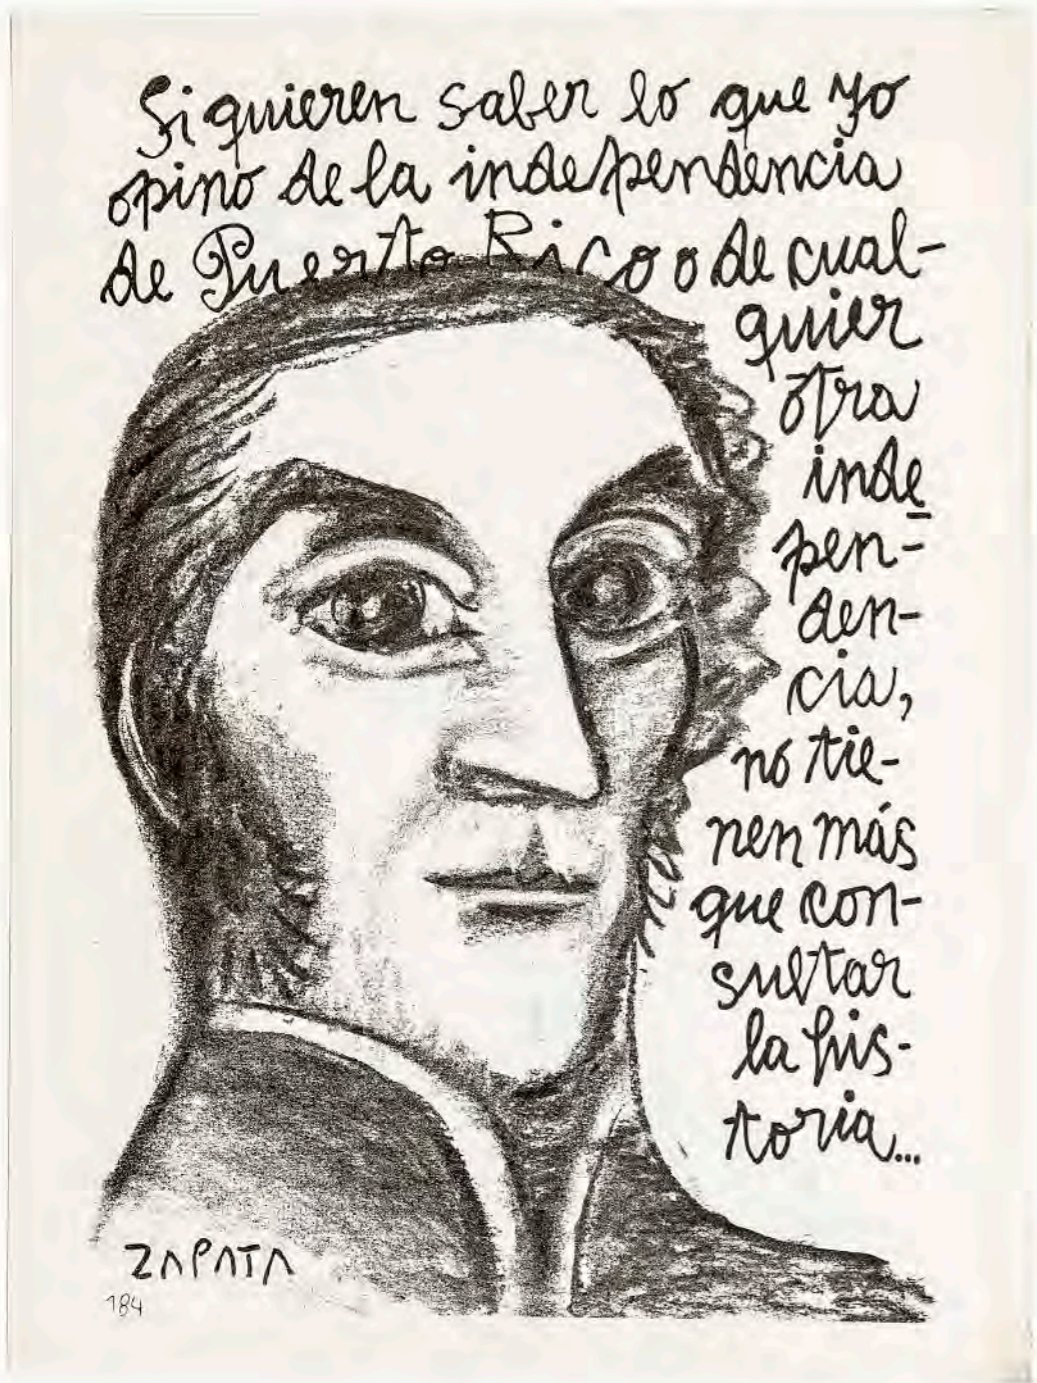 Si quieren saber lo que yo
opino de la independencia
de Puerto Rico o de cual-
quier
otra
inde-
pen-
den-
cia,
no tie-
nen más
que con-
sultar
la his-
toria...
ZAPATA
184